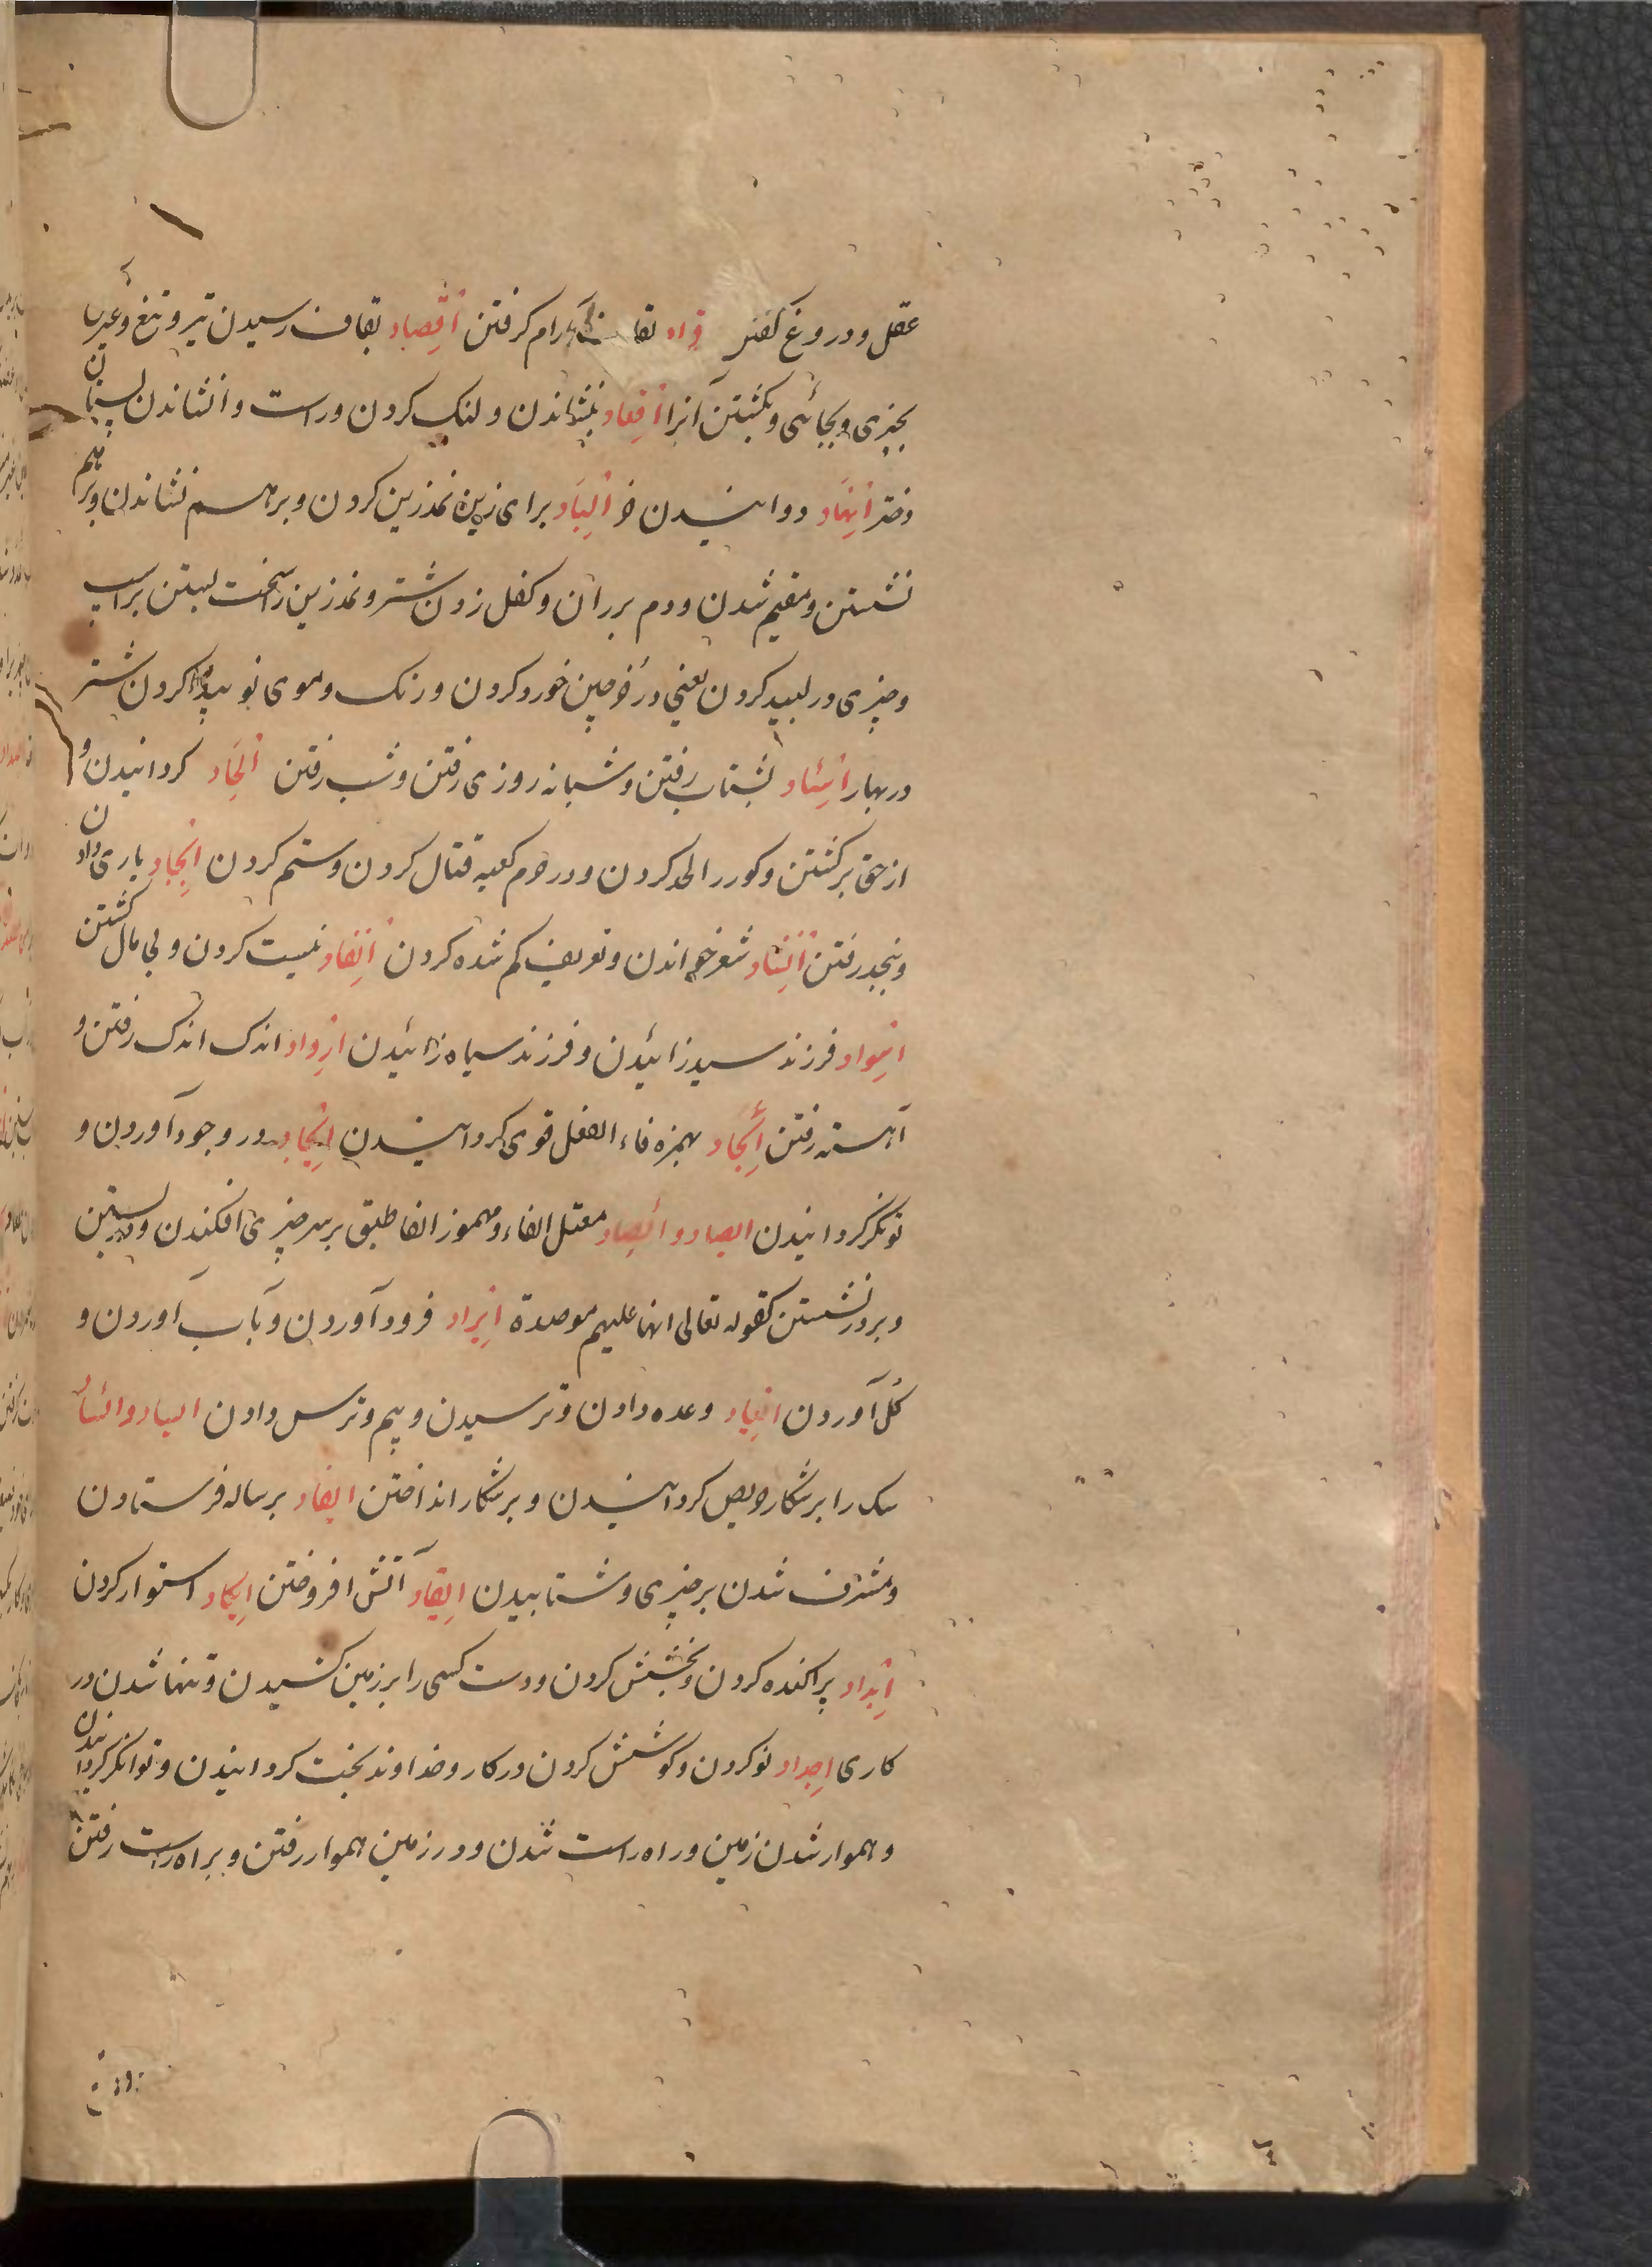 عقل و دروغ گفتن قراد بقاف آرام گرفتن اقصاد بقاف رسیدن تیر و تیغ و غیران
بچیزی و بجائی و بکشتن آنرا اقعاد بنشاندن و لنک کردن و راست وانشاندن پستان
دختر انهاد دوانیدن خر الباد برای زین نمدزین کردن و برهم نشاندن و برهم
نشستن و مقیم شدن و دم بر ران و کفل زدن شتر و نمدزین را سخت بستن بر اسپ
و چیزی در لبید کردن یعنی در خرجین خورد کردن و رنک و موی نو پیدا کردن شتر
در بهار اسئاد بشتاب رفتن و شبانه روزی رفتن و شب رفتن الحاد کردانیدن و
از حق برکشتن و کور را لحد کردن و در حرم کعبه قتال کردن و ستم کردن انجاد یاری دادن
و بنجد رفتن انشاد شعر خواندن و تعریف کم شده کردن انفاد نیست کردن و بی مال کشتن
اسواد فرزند سید زائیدن و فرزند سیاه زائیدن ارواد اندک اندک رفتن و
آهسته رفتن ائجاد بهمزه فاء الفعل قوی کردانیدن ایجاد در وجود آوردن و
تونکر کردانیدن ایصاد و ائصاد معتل الفاء و مهموز الفا طبق بر سر چیزی افکندن و در بستن
و بر در نشستن کقوله تعالی انها علیهم موصدة ایراد فرود آوردن و بآب آوردن و
کل آوردن ایعاد وعده دادن و ترسیدن و بیم و ترس دادن ایساد و ائساد
سک را بر شکار حریص کردانیدن و بر شکار انداختن ایفاد برساله فرستادن
و مشرف شدن بر چیزی و شتابیدن ایقاد آتش افروختن ایکاد استوار کردن
ابداد پراکنده کردن و بخشش کردن و دست کسی را بر زمین کشیدن و تنها شدن در
کاری اجداد نو کردن و کوشش کردن در کار و خداوند بخت کردانیدن و توانکر کردانیدن
و هموار شدن زمین و راه راست شدن و در زمین هموار رفتن و براه راست رفتن